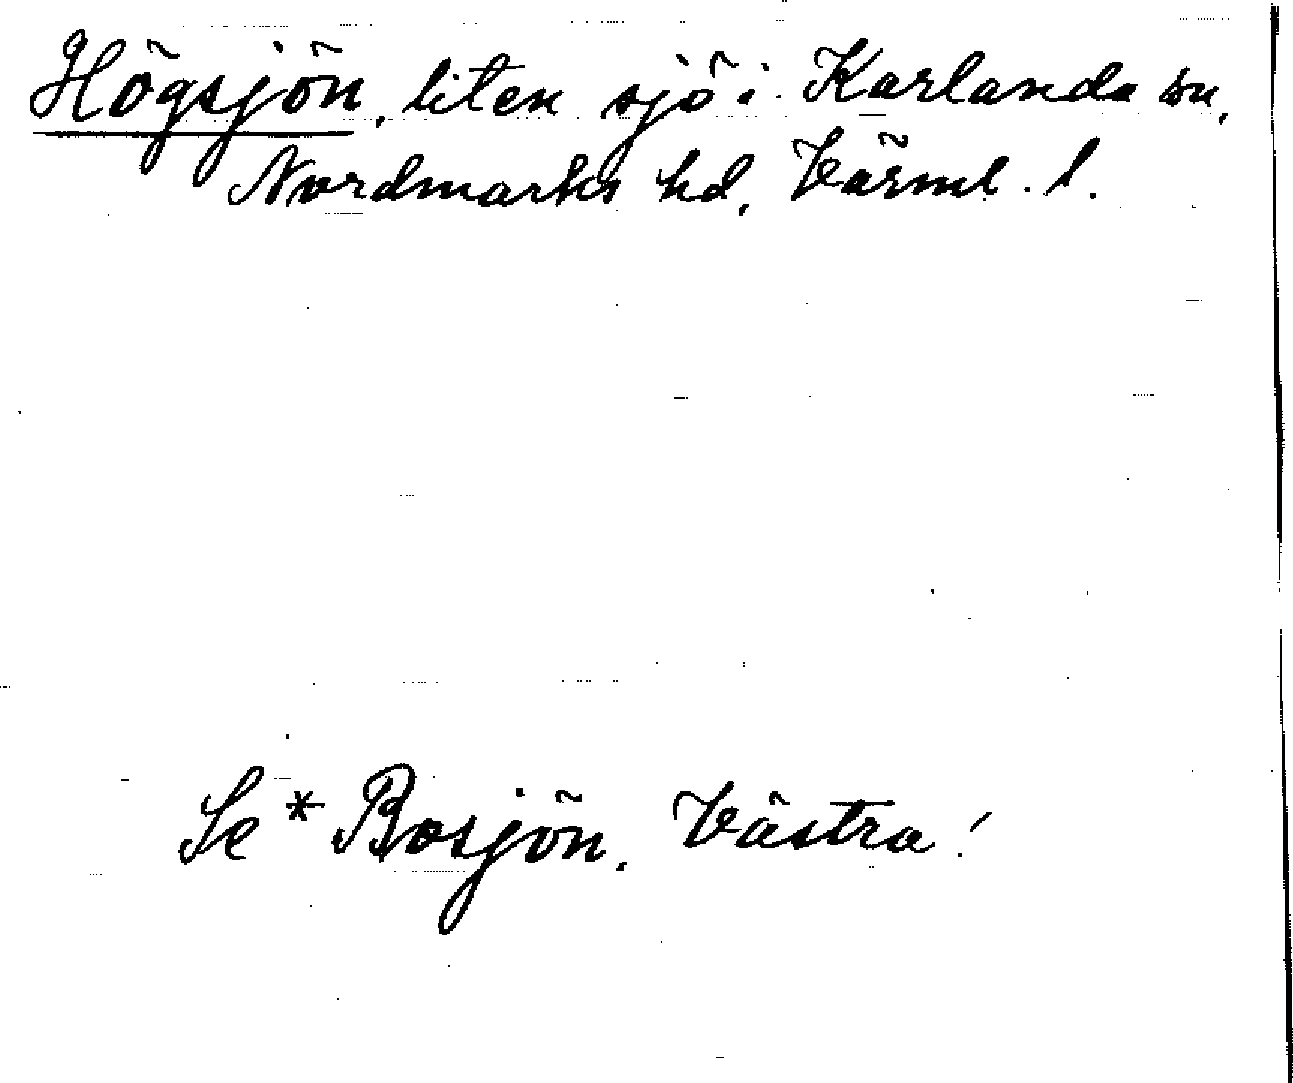 Högsjön, liten sjö i Karlanda sn,
Nordmarks hd, Värml. l.
Se * Bosjön, Västra!